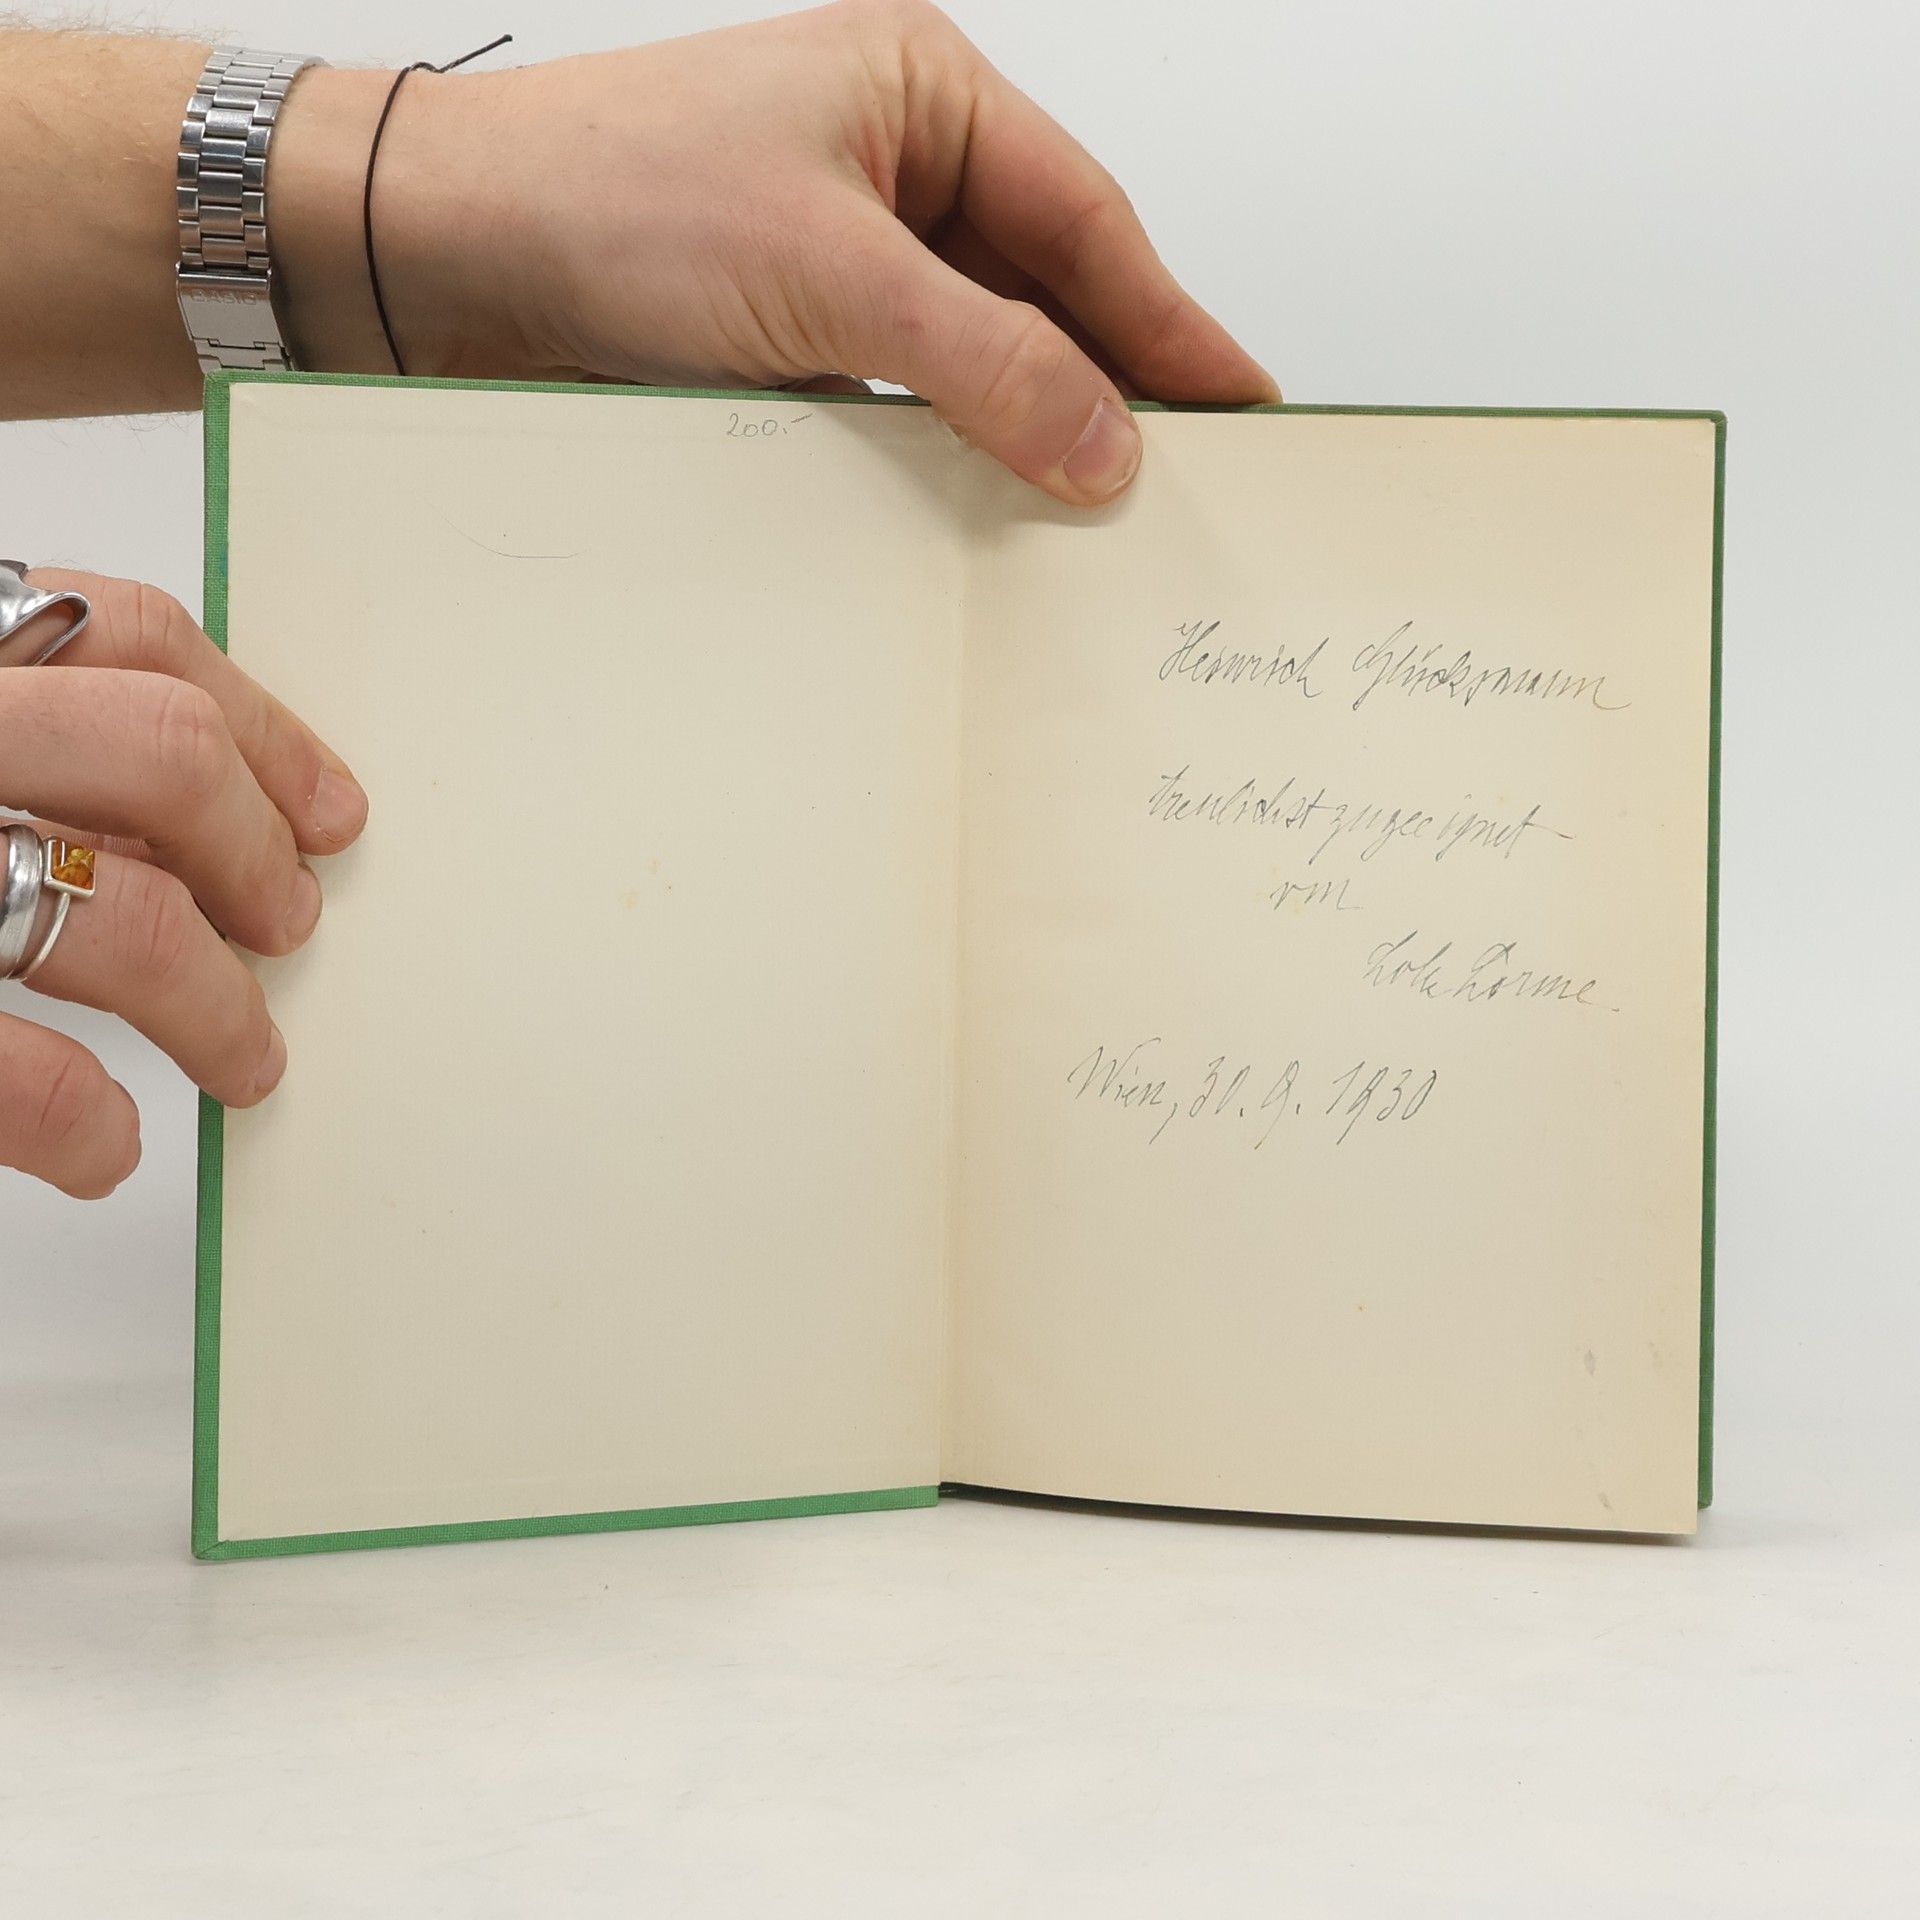 CASIO
200.-
Heinrich Glücksmann
treulichst zugeeignet
von
Lola Lorme.
Wien, 30. 9. 1930